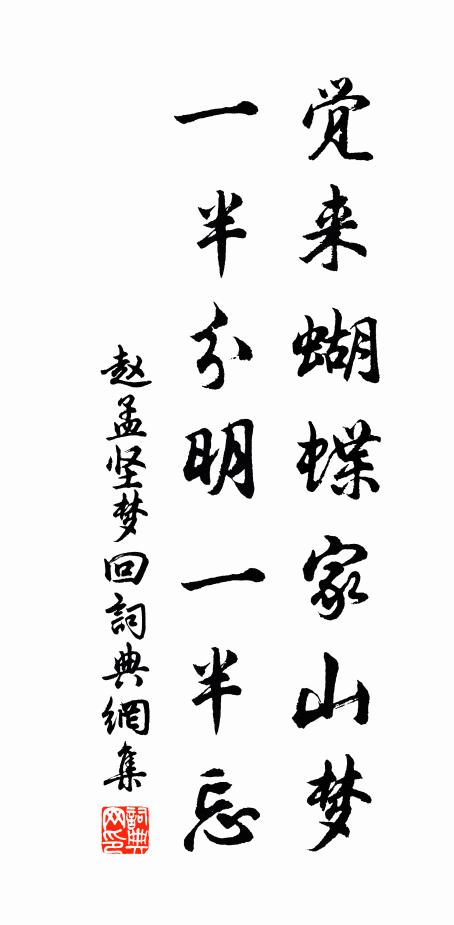 觉来蝴蝶家山梦
一半分明一半忘
赵孟坚梦回詞典網集
詞典网印